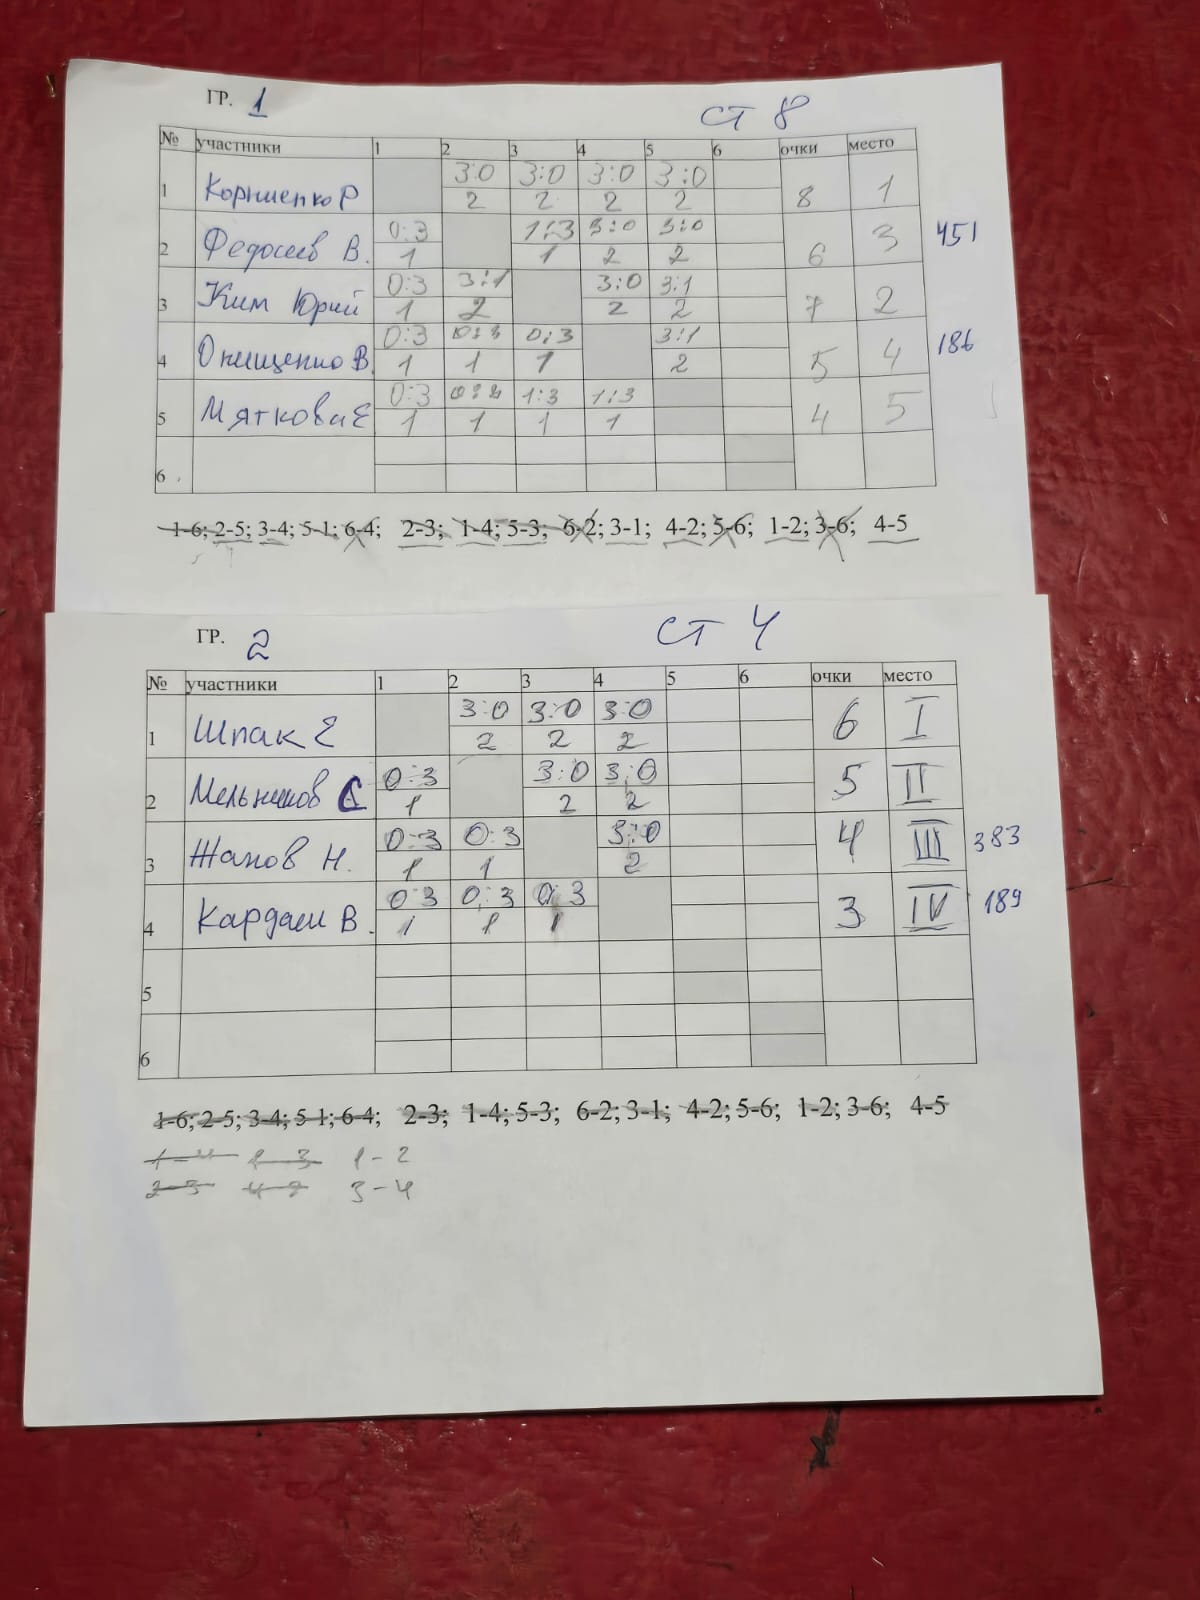 ГР. 1 СТ 8
№ участники 1 2 3 4 5 6 очки место
1 Корниенко Р 3:0 3:0 3:0 3:0 8 1
2 2 2 2
2 Федосеев В. 0:3 1:3 3:0 3:0 6 3 451
1 1 2 2
3 Ким Юрий 0:3 3:1 3:0 3:1 7 2
1 2 2 2
4 Онищенко В. 0:3 0:3 0:3 3:1 5 4 186
1 1 1 2
5 Мяткова Е 0:3 0:3 1:3 1:3 4 5
1 1 1 1
6
1-6; 2-5; 3-4; 5-1; 6-4; 2-3; 1-4; 5-3; 6-2; 3-1; 4-2; 5-6; 1-2; 3-6; 4-5
ГР. 2 СТ 4
№ участники 1 2 3 4 5 6 очки место
1 Шпак Е 3:0 3:0 3:0 6 I
2 2 2
2 Мельников С 0:3 3:0 3:0 5 II
1 2 2
3 Жапов Н. 0:3 0:3 3:0 4 III 383
1 1 2
4 Кардаш В. 0:3 0:3 0:3 3 IV 189
1 1 1
5
6
1-6; 2-5; 3-4; 5-1; 6-4; 2-3; 1-4; 5-3; 6-2; 3-1; 4-2; 5-6; 1-2; 3-6; 4-5
1-4 1-3 1-2
2-3 4-2 3-4